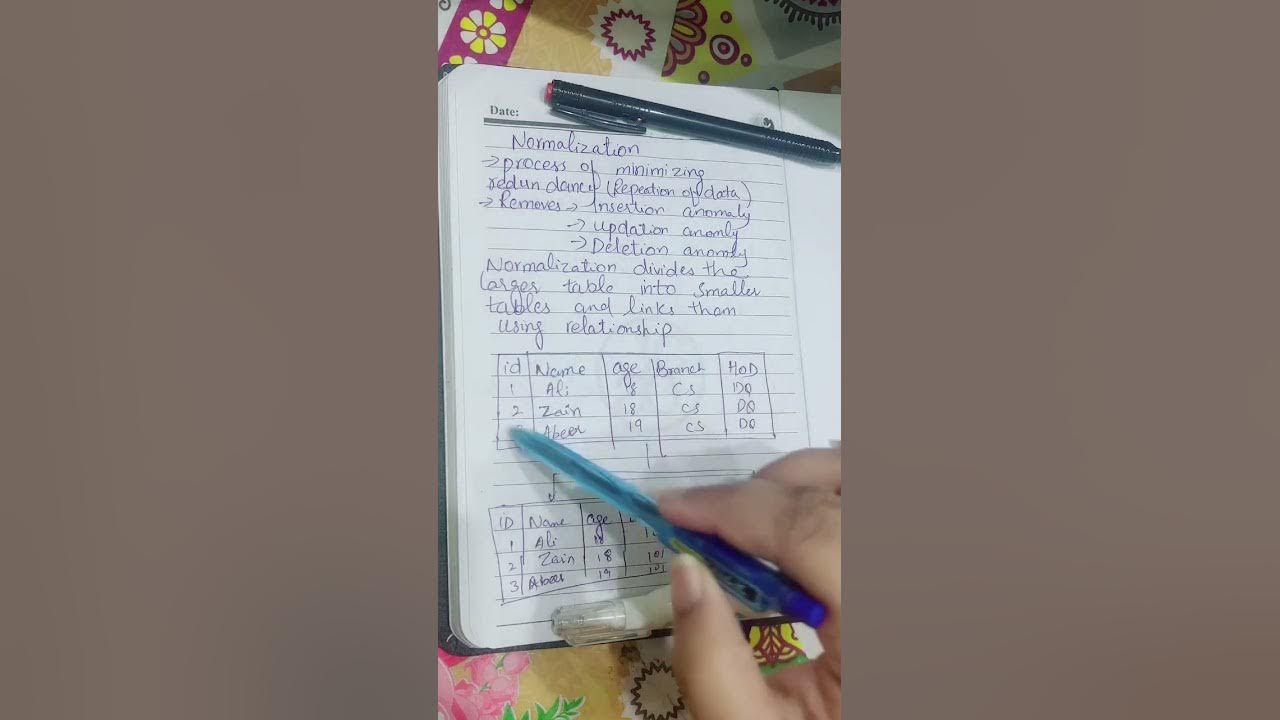 Date:
Normalization
→ process of minimizing
redundancy (Repeation of data)
→ Removes → Insertion anomaly
→ updation anomly
→ Deletion anomly
Normalization divides the
larges table into smaller
tables and links them
using relationship
id Name age Branch HoD
1 Ali 18 CS DQ
2 Zain 18 CS DQ
Abeer 19 CS DQ
ID Name age
1 Ali 18
2 Zain 18 101
3 Abeer 19 101